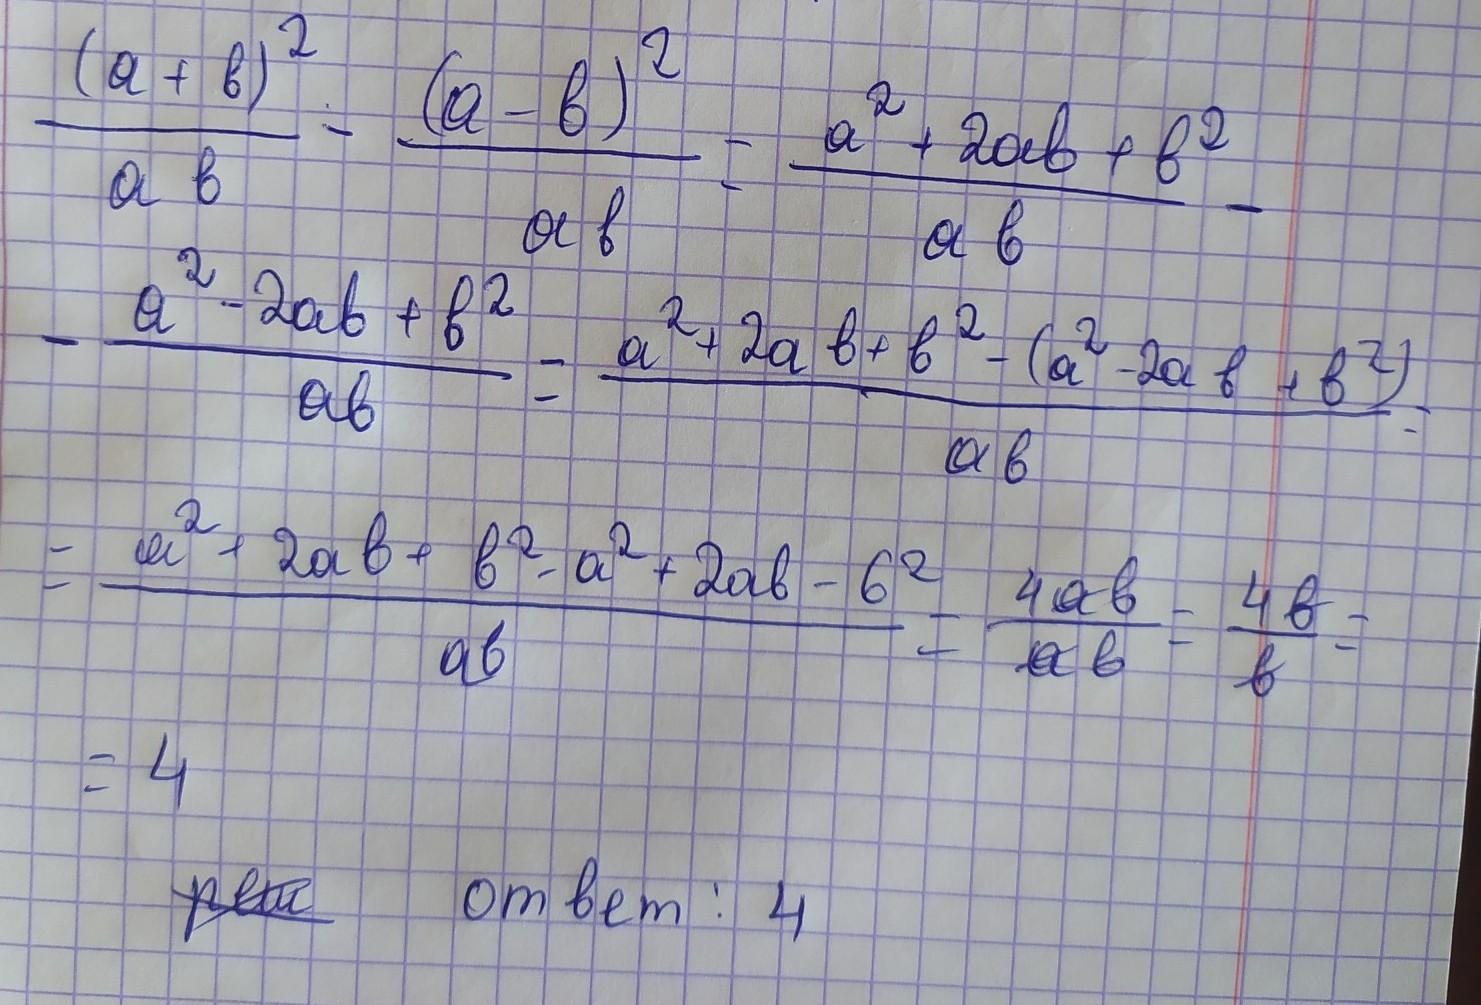 (a + b)² / ab - (a - b)² / ab = a² + 2ab + b² / ab -
- a² - 2ab + b² / ab = a² + 2ab + b² - (a² - 2ab + b²) / ab =
= a² + 2ab + b² - a² + 2ab - b² / ab = 4ab / ab = 4b / b =
= 4
ответ: 4